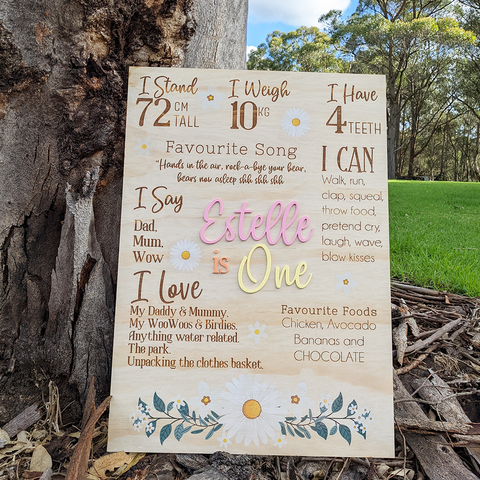 I Stand
72 CM TALL
I Weigh
10 KG
I Have
4 TEETH
Favourite Song
"Hands in the air, rock-a-bye your bear,
bears now asleep shh shh shh
I CAN
Walk, run,
clap, squeal,
throw food,
pretend cry,
laugh, wave,
blow kisses
I Say
Dad,
Mum,
Wow
Estelle
is One
I Love
My Daddy & Mummy.
My WooWoos & Birdies.
Anything water related.
The park.
Unpacking the clothes basket.
Favourite Foods
Chicken, Avocado
Bananas and
CHOCOLATE